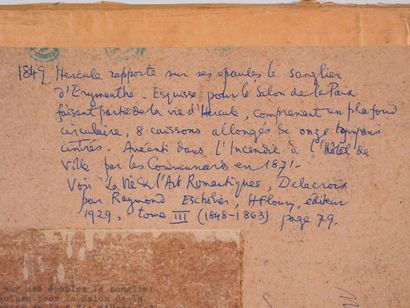 1849 Hercule rapporte sur ses épaules le sanglier
d'Erymenthe - Esquisse pour le Salon de la Paix
faisant partie de la vie d'Hercule, comprenant un plafond
circulaire, 8 caissons allongés & onze tympans
cintrés. Anéanti dans l'Incendie de l'Hôtel de
Ville par les Communards en 1871-
Voir: La Vie & l'Art Romantiques, Delacroix
par Raymond Escholier, H Floury, éditeur
1929, tome III (1848-1863) page 79.
sur ses épaules le sanglier
pour le Salon de la